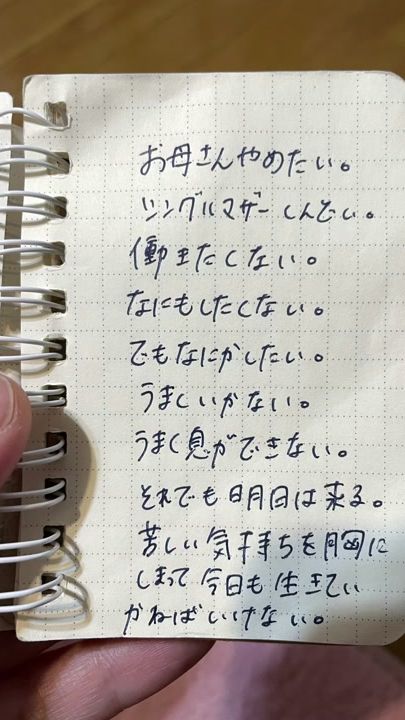 お母さんやめたい。
シングルマザーしんどい。
働きたくない。
なにもしたくない。
でもなにかしたい。
うまくいかない。
うまく息ができない。
それでも明日は来る。
苦しい気持ちを胸に
しまって今日も生きてい
かねばいけない。